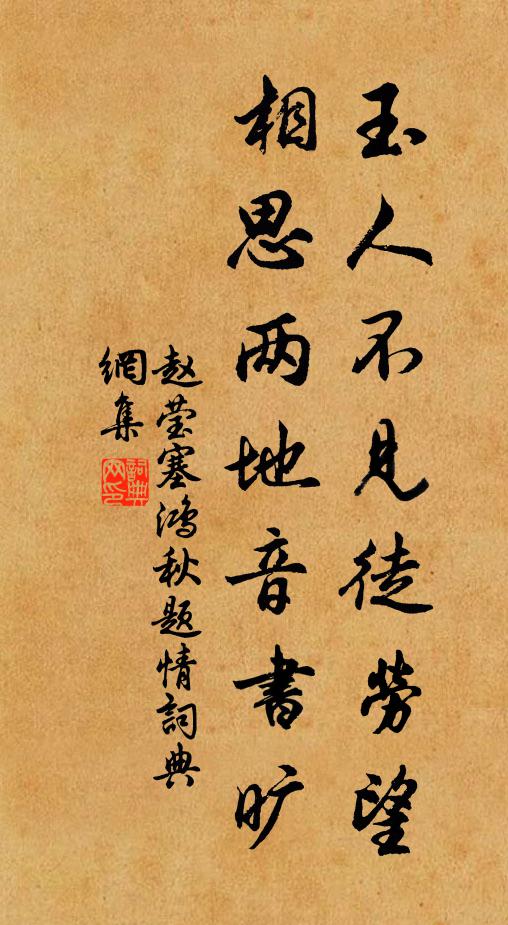 玉人不見徒勞望
相思两地音書旷
赵莹塞鴻秋题情詞典
網集
詞典
网印